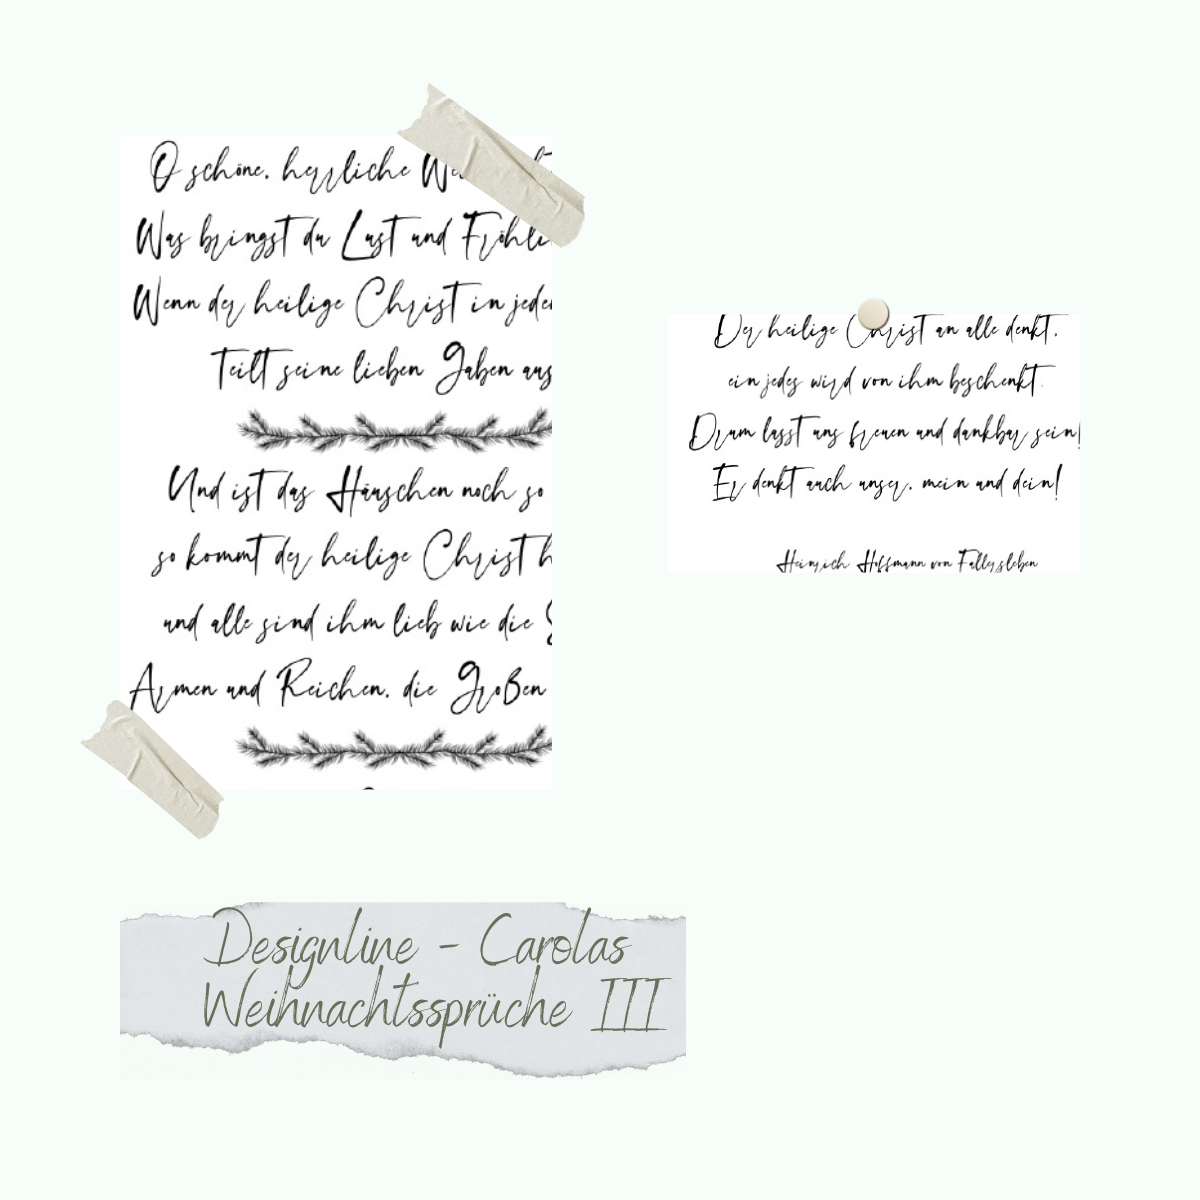 O schöne, herrliche
Was bringst du Lust und Fröhli
Wenn der heilige Christ in jede
Teilt seine lieben Gaben aus
Und ist das Häuschen noch so
so kommt der heilige Christ h
und alle sind ihm lieb wie die
Armen und Reichen, die Großen
Der heilige Christ an alle denkt,
ein jedes wird von ihm beschenkt.
Drum lasst uns freuen und dankbar sein!
Er denkt auch unser, mein und dein!
Heinrich Hoffmann von Fallersleben
Designline - Carolas
Weihnachtssprüche III